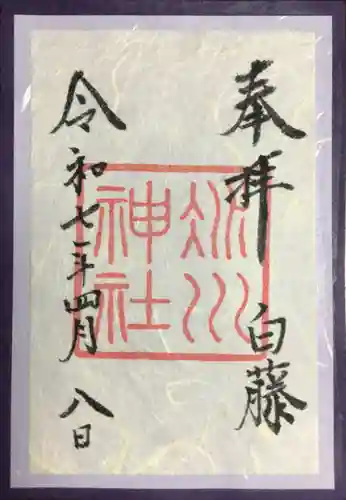 奉拝 白藤
氷川
神社
令和七年四月八日